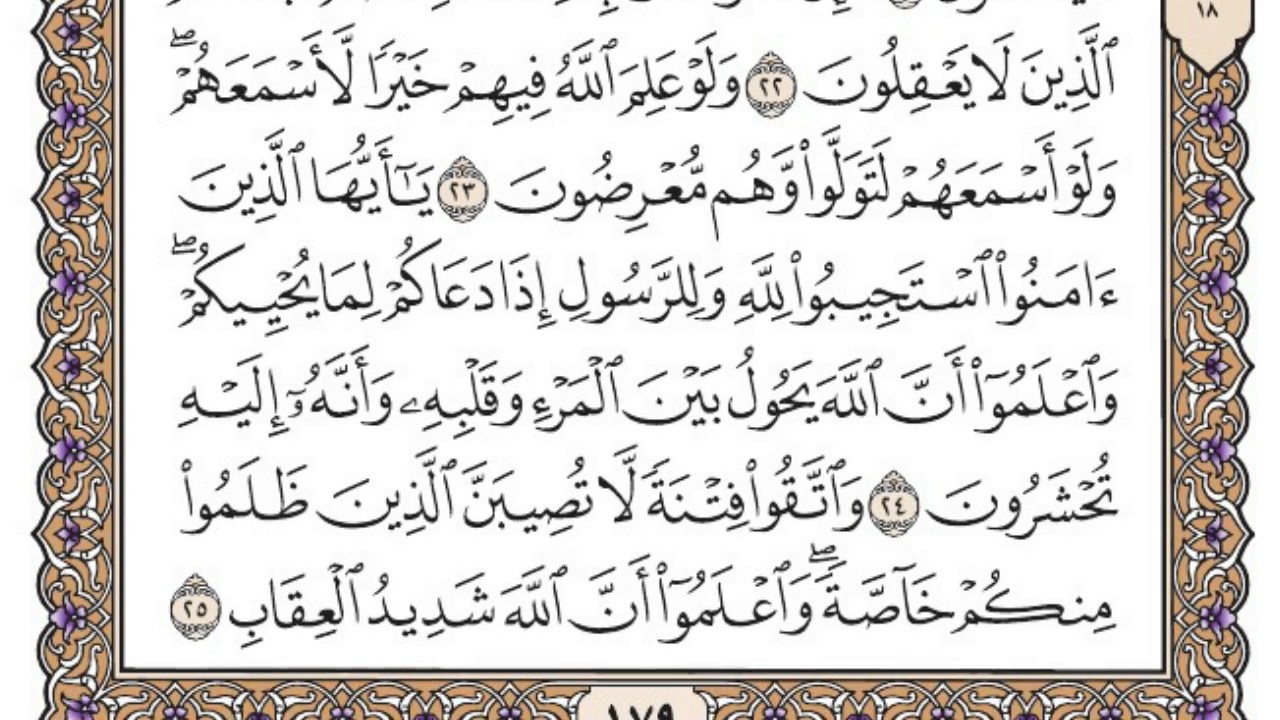 ١٨
ٱلَّذِينَ لَا يَعۡقِلُونَ ٢٢ وَلَوۡ عَلِمَ ٱللَّهُ فِيهِمۡ خَيۡرٗا لَّأَسۡمَعَهُمۡۖ
وَلَوۡ أَسۡمَعَهُمۡ لَتَوَلَّواْ وَّهُم مُّعۡرِضُونَ ٢٣ يَٰٓأَيُّهَا ٱلَّذِينَ
ءَامَنُواْ ٱسۡتَجِيبُواْ لِلَّهِ وَلِلرَّسُولِ إِذَا دَعَاكُمۡ لِمَا يُحۡيِيكُمۡۖ
وَٱعۡلَمُوٓاْ أَنَّ ٱللَّهَ يَحُولُ بَيۡنَ ٱلۡمَرۡءِ وَقَلۡبِهِۦ وَأَنَّهُۥٓ إِلَيۡهِ
تُحۡشَرُونَ ٢٤ وَٱتَّقُواْ فِتۡنَةٗ لَّا تُصِيبَنَّ ٱلَّذِينَ ظَلَمُواْ
مِنكُمۡ خَآصَّةٗۖ وَٱعۡلَمُوٓاْ أَنَّ ٱللَّهَ شَدِيدُ ٱلۡعِقَابِ ٢٥
١٧٩